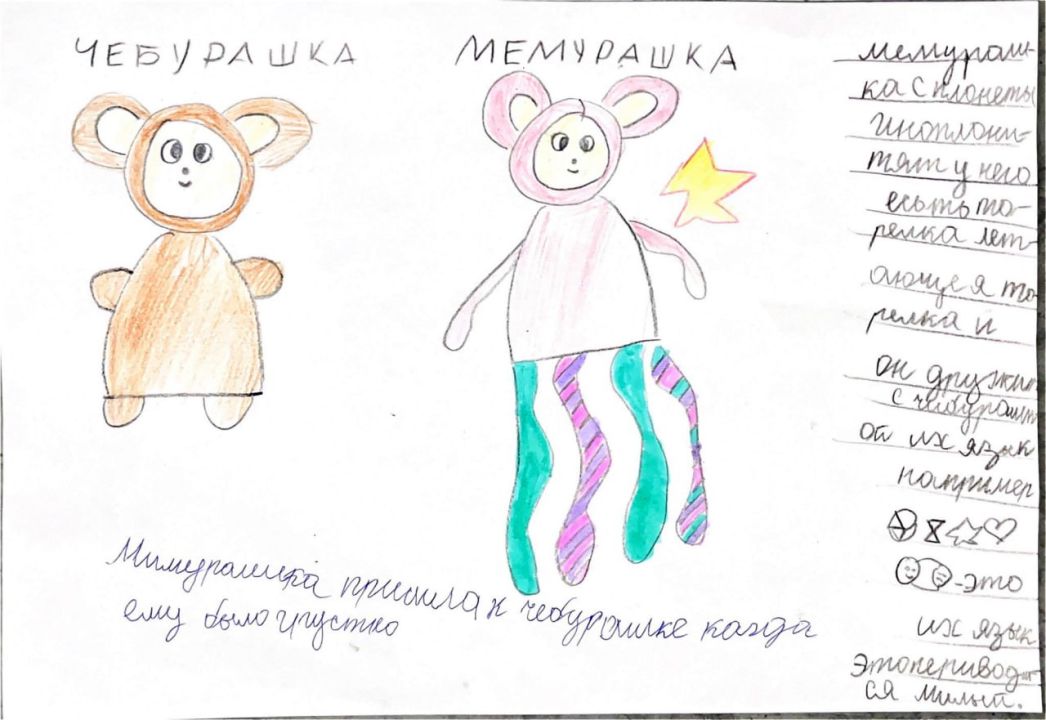 ЧЕБУРАШКА
МЕМУРАШКА
мемураш-
ка с планеты
инаплони-
тят у него
есьть та-
релка лет-
ающея та-
релка и
он дружит
с чибурашк
ой их язык
например
-это
их язык
это перивод-
ся милый.
Мимурашка пришла к чебурашке кагда
ему было груство